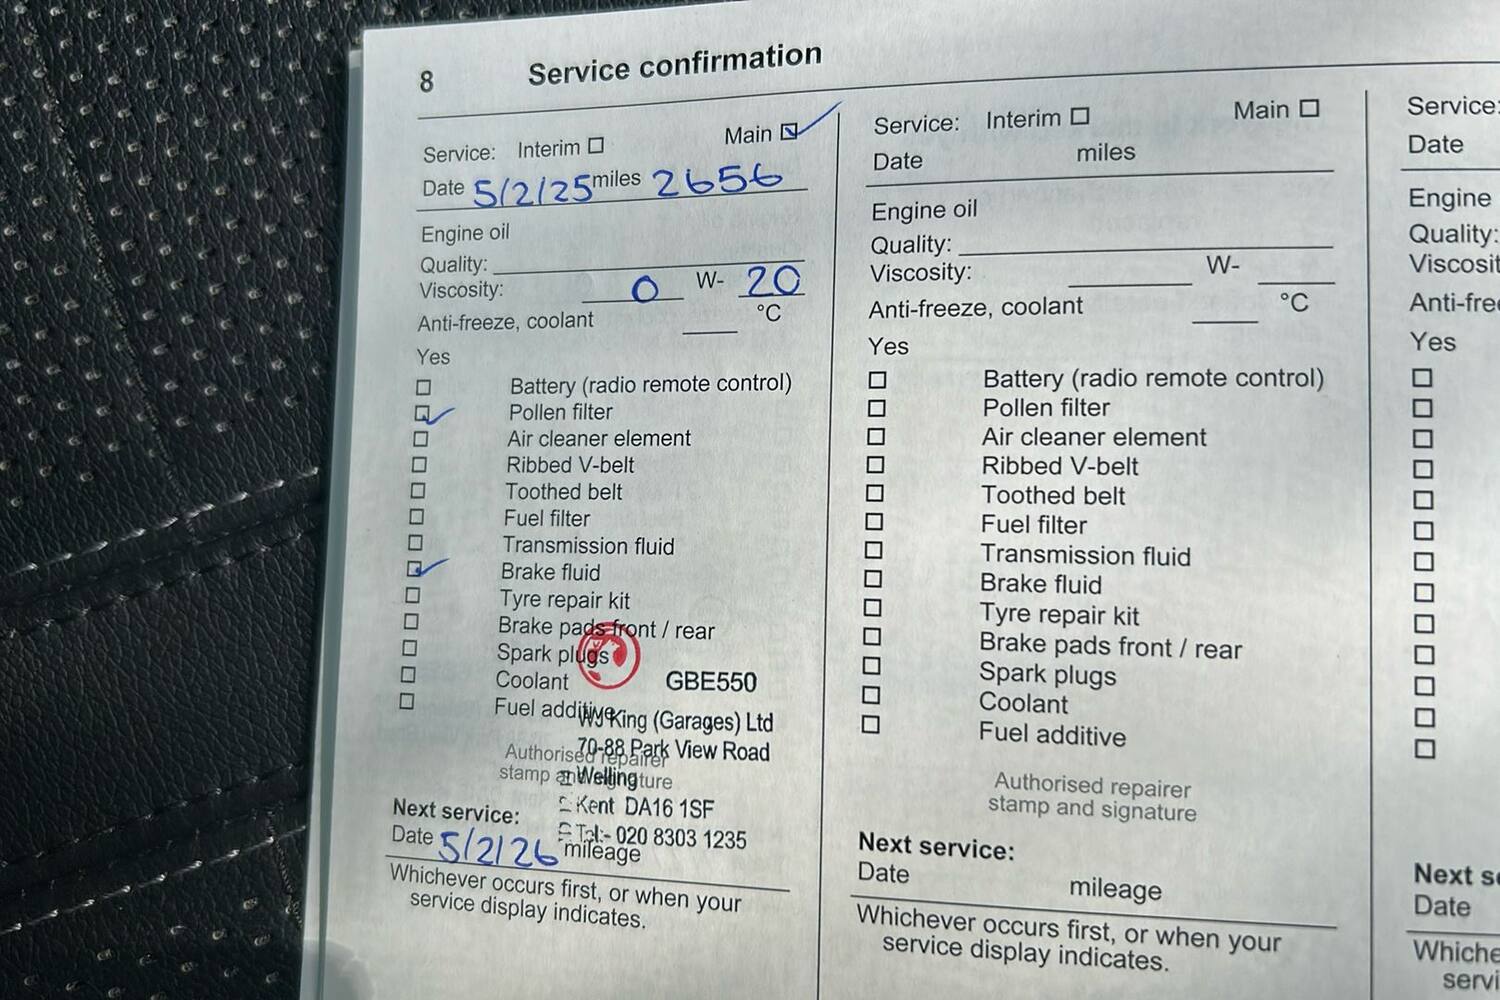 8 Service confirmation
Service: Interim Main
Date 5/2/25 miles 2656
Engine oil
Quality:
Viscosity: 0 W- 20
Anti-freeze, coolant °C
Yes
Battery (radio remote control)
Pollen filter
Air cleaner element
Ribbed V-belt
Toothed belt
Fuel filter
Transmission fluid
Brake fluid
Tyre repair kit
Brake pads front / rear
Spark plugs
Coolant GBE550
Fuel additive
WJ King (Garages) Ltd
Authorised repairer
70-88 Park View Road
stamp and signature
Welling
Kent DA16 1SF
Next service:
Tel:- 020 8303 1235
Date 5/2/26 mileage
Whichever occurs first, or when your
service display indicates.
Service: Interim Main
Date miles
Engine oil
Quality:
Viscosity: W-
Anti-freeze, coolant °C
Yes
Battery (radio remote control)
Pollen filter
Air cleaner element
Ribbed V-belt
Toothed belt
Fuel filter
Transmission fluid
Brake fluid
Tyre repair kit
Brake pads front / rear
Spark plugs
Coolant
Fuel additive
Authorised repairer
stamp and signature
Next service:
Date mileage
Whichever occurs first, or when your
service display indicates.
Service:
Date
Engine
Quality:
Yes
Next
Date